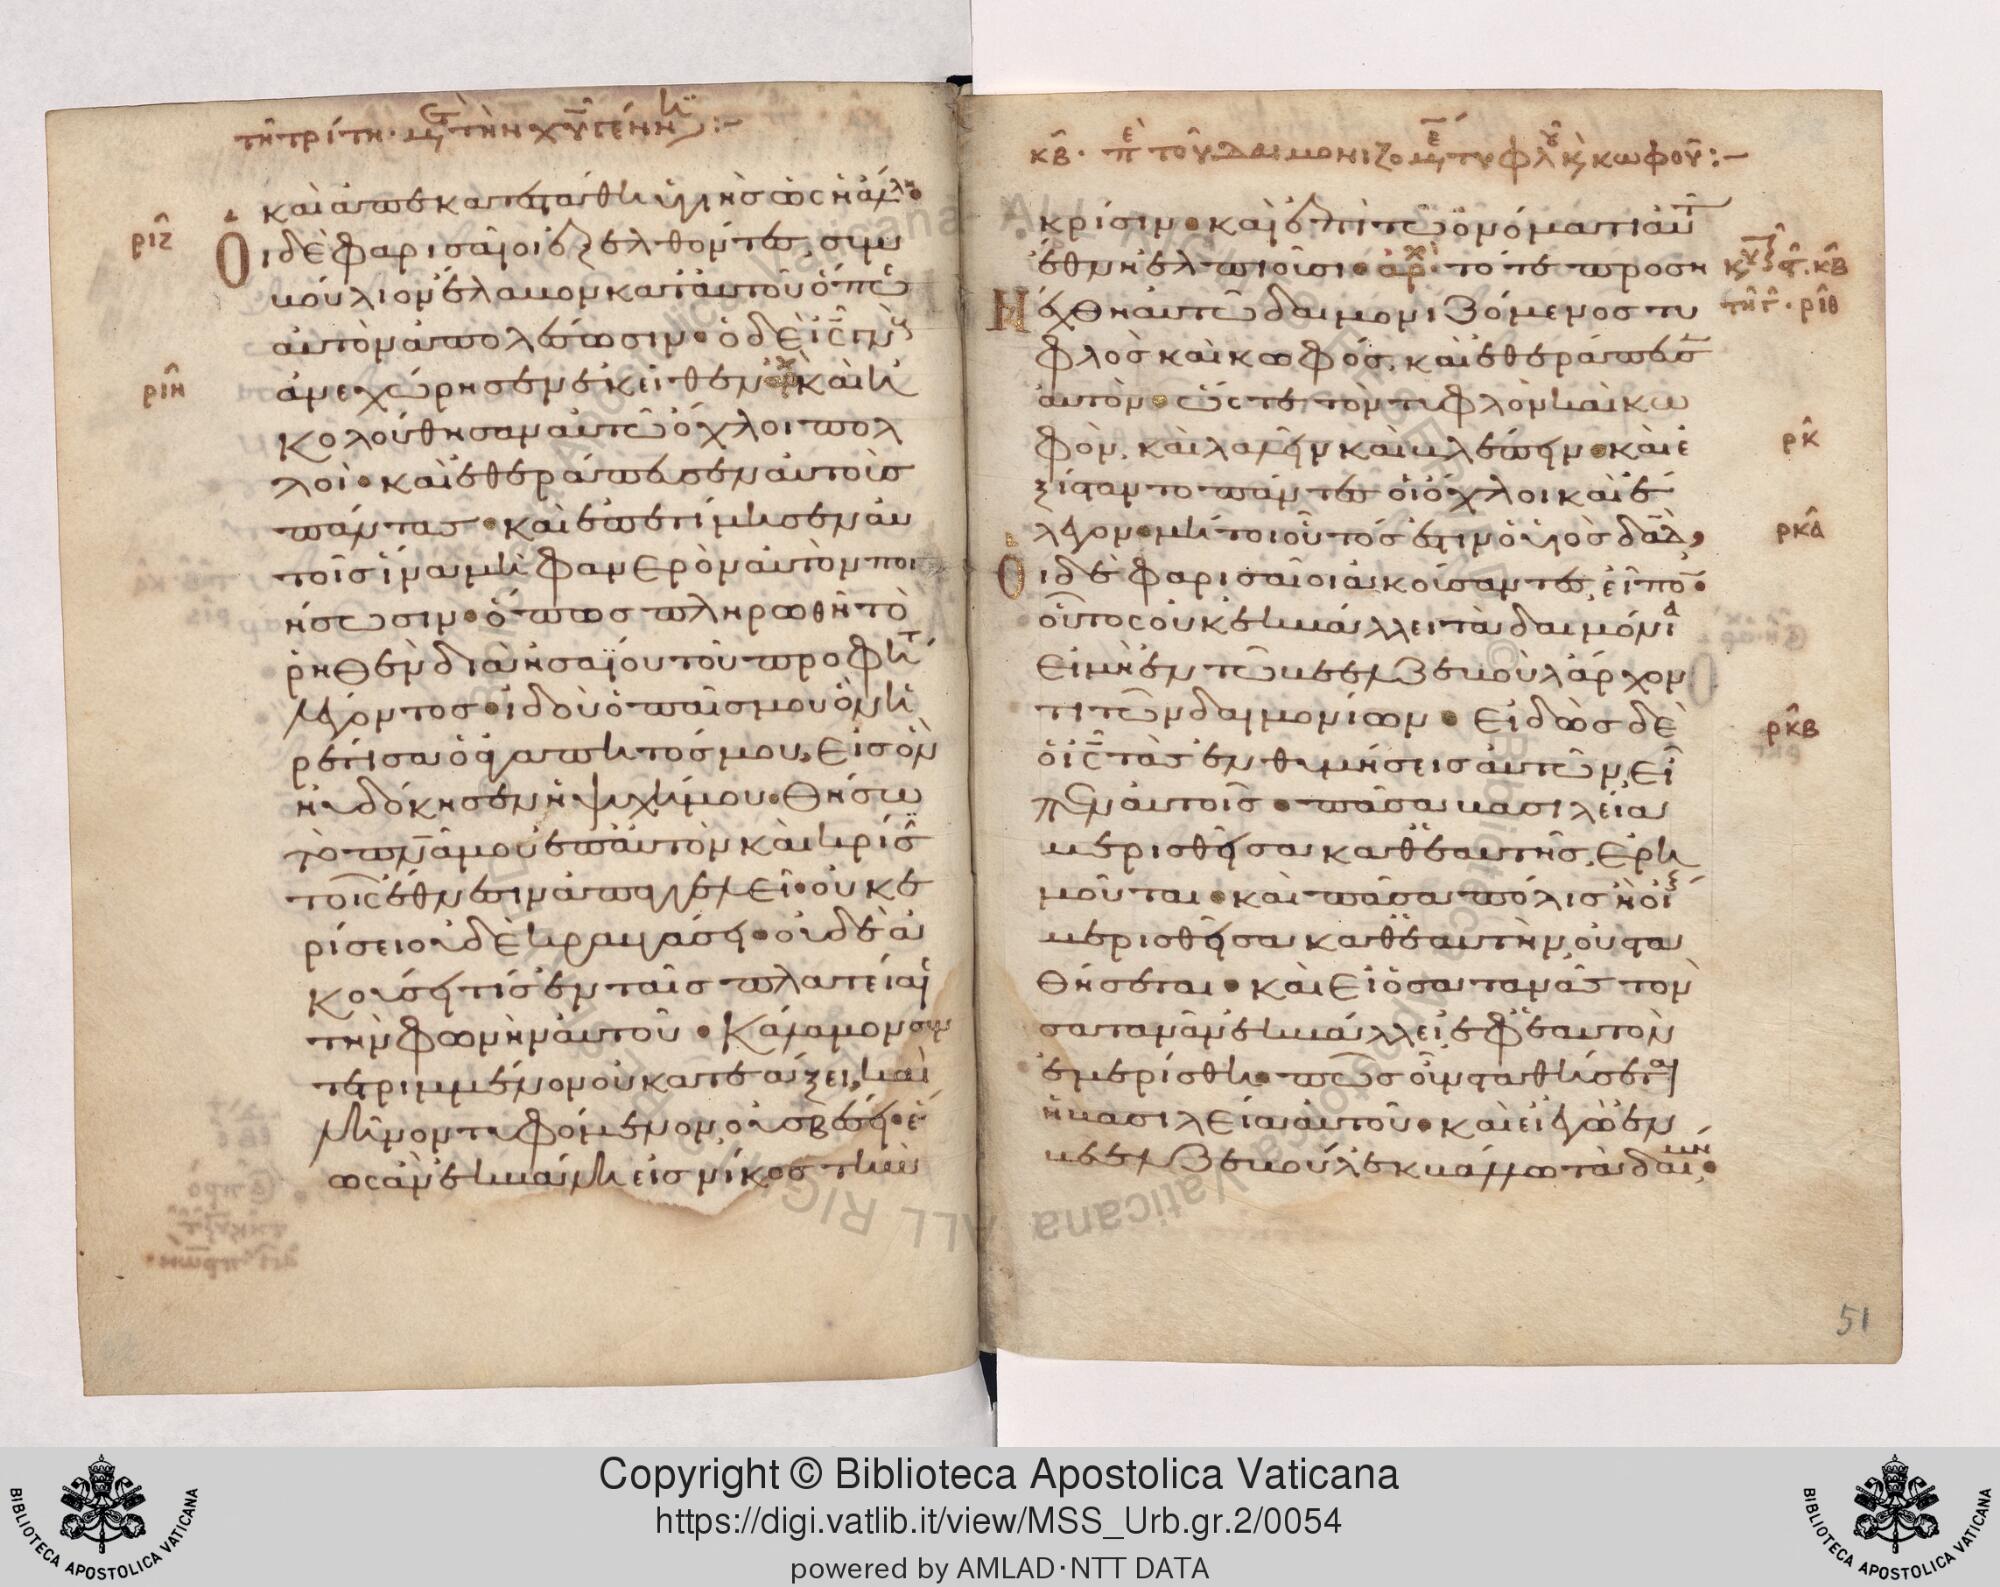 τῇ τρίτῃ· μετ τὴν χυ γένην:–
καὶ ἀπεκατεστάθη ὑγιὴς ὡς ἡ ἄλλη
ριζ
Οἱ δὲ φαρισαῖοι ἐξελθόντες, συμ
βούλιον ἔλαβον κατ᾽ αὐτοῦ ὅπως
αὐτὸν ἀπολέσωσιν· ὁ δὲ ις γνοὺς
ριη
ἀνεχώρησεν ἐκεῖθεν· καὶ ἠ
κολούθησαν αὐτῶ ὄχλοι πολ
λοὶ· καὶ ἐθεράπευσεν αὐτοὺς
πάντας· καὶ ἐπετίμησεν αὐ
τοῖς ἵνα μὴ φανερὸν αὐτὸν ποι
ήσωσιν· ὅπως πληρωθῆ τὸ
ῥηθὲν διὰ ἠσαΐου τοῦ προφήτ
λέγοντος· ἰδοὺ ὁ παῖς μου ὃν ἡ
ρέτισα ὁ ἀγαπητός μου, εἰς ὃν
ηὐδόκησεν ἡ ψυχή μου· θήσω
τὸ πνα μου ἐπ᾽ αὐτὸν καὶ κρίσ
τοῖς ἔθνεσιν ἀπαγγελεῖ· οὐκ ἐ
ρίσει οὐδὲ κραυγάσει· οὐδὲ ἀ
κούσει τίς ἐν ταῖς πλατείαις
τὴν φωνὴν αὐτοῦ· Κάλαμον συν
τετριμμένον οὐ κατεάξει, καὶ
λίνον τυφόμενον, οὐ σβέσει· ἕ
ως ἂν ἐκβάλη εἰς νῖκος τὴν
κβ· πε τοῦ δαιμονιζομε τυφλου κ κωφοῦ:–
κρίσιν· καὶ ἐπὶ τῶ ὀνόματι αὐτ
ἔθνη ἐλπιοῦσι· ἀρχ· τότε προση
κβ
τῇ γ· ριθ
νέχθη αὐτῶ δαιμονιζόμενος τυ
φλὸς καὶ κωφός, καὶ ἐθεράπευσ
αὐτὸν· ὥστε τὸν τυφλὸν καὶ κω
φὸν, καὶ λαλεῖν καὶ βλέπειν· καὶ ἐ
ρκ
ξίσταντο πάντες οἱ ὄχλοι καὶ ἔ
λεγον· μήτι οὗτός ἐστιν ὁ υἱὸς δαδ,
ρκα
Οἱ δὲ φαρισαῖοι ἀκούσαντες, εἶπον·
οὗτος οὐκ ἐκβάλλει τὰ δαιμόνια
εἰ μὴ ἐν τῶ βεελζεβοὺλ ἄρχον
τι τῶν δαιμονίων· εἰδὼς δὲ
ρκβ
ὁ ις τὰς ἐνθυμήσεις αὐτῶν, εἶ
πεν αὐτοῖς· πᾶσα βασιλεία
μερισθεῖσα καθ᾽ ἑαυτῆς, ἐρη
μοῦται· καὶ πᾶσα πόλις ἢ οἰκί
μερισθεῖσα καθ᾽ ἑαυτὴν, οὐ στα
θήσεται· καὶ εἰ ὁ σατανᾶς τὸν
σατανᾶν ἐκβάλλει, ἐφ᾽ ἑαυτὸν
ἐμερίσθη· πῶς οὖν σταθήσεται
ἡ βασιλεία αὐτοῦ· καὶ εἰ ἐγὼ ἐν
βεελζεβοὺλ ἐκβάλλω τὰ δαιμόνια·
51
Copyright © Biblioteca Apostolica Vaticana
https://digi.vatlib.it/view/MSS_Urb.gr.2/0054
powered by AMLAD·NTT DATA
BIBLIOTECA APOSTOLICA VATICANA
BIBLIOTECA APOSTOLICA VATICANA